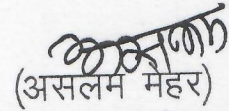 (असलम महर)